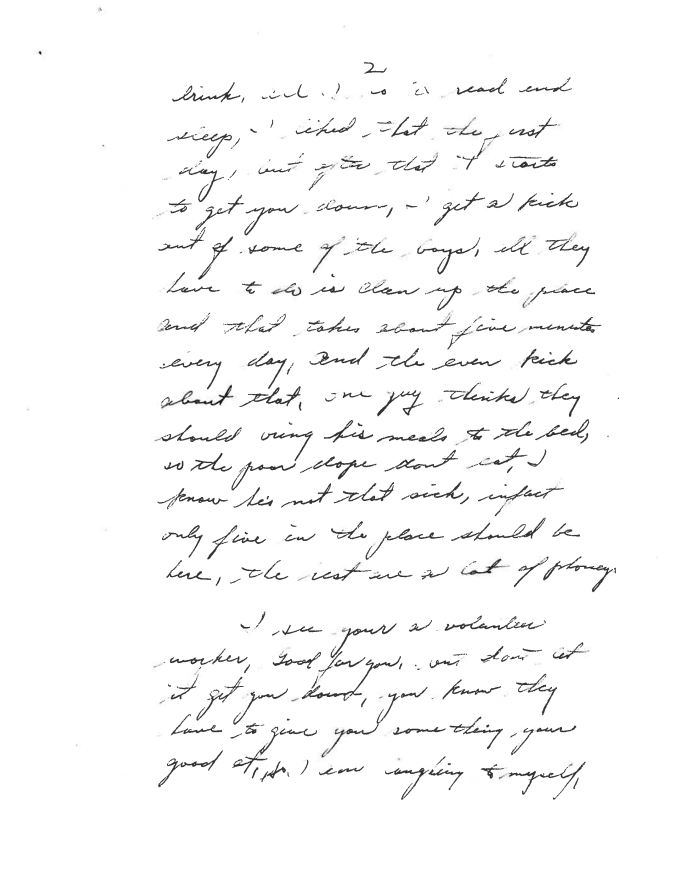 2
drink, and I do is read and
sleep, I liked that the first
day, but after that it starts
to get you down, I get a kick
out of some of the boys, all they
have to do is clean up the place
and that takes about five minutes
every day, and the even kick
about that, one guy thinks they
should bring his meals to the bed,
so the poor dope dont eat, I
know his not that sick, infact
only five in the place should be
here, the rest are a lot of phoneys
I see your a volunteer
worker, Good for you, but dont let
it get you down, you know they
have to give you some thing your
good at, I am laughing to myself,